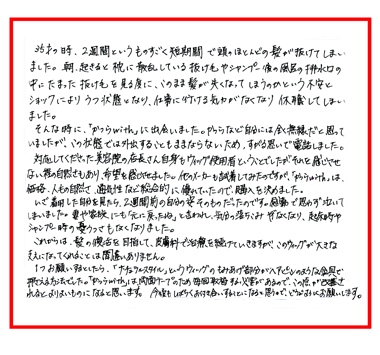 35才の時、2週間というものすごく短期間で頭のほとんどの髪が抜けてしまい
ました。朝、起きると枕に散乱している抜け毛やシャンプー後の風呂の排水口の
中にたまった抜け毛を見る度に、このまま髪が失くなってしまうのかという不安と
ショックによりうつ状態となり、仕事に行ける気力がなくなり休職してしまい
ました。
そんな時に、「かつらWith」に出会いました。かつらなど自分には全く無縁だと思って
いましたが、この状態では外出することもままならないため、すがる思いで電話しました。
対応してくださった美容院の店長さん自身もウィッグ使用者ということでしたがそれを感じさせ
ない程の自然さもあり、希望を感じさせました。他のメーカーも試着してみたのですが、「かつらWith」は、
価格、人もの自然さ、通気性など総合的に優れていたので、購入を決めました。
いざ着用した自分を見たら、2週間前の自分の姿そのものだったのです。感動で思わず泣いて
しまいました。妻や家族にも「元に戻ったね」と言われ、気分の落ちこみがなくなり、起床時や
シャンプー時の憂うつさもなくなりました。
これからは、髪の復活を目指して、皮膚科で治療を続けていきますが、このウィッグが大きな
支えになってくれることは間違いありません。
1つお願いするとしたら、「ナチュラルスタイル」というウィッグのもみあげ部分がヘアピンのような金具で
押さえる方法でした。「かつらWith」は、両面テープのため毎回取替える必要があるので、この点が改善さ
れるとよりよいものになると思います。今後もしばらくお付き合いすることになると思うので、どうぞよろしくお願いします。